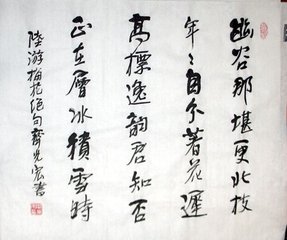 幽谷那堪更北枝
年々自分著花遲
高標逸韵君知否
正在層冰積雪時
陸游梅花絕句齊光宏書